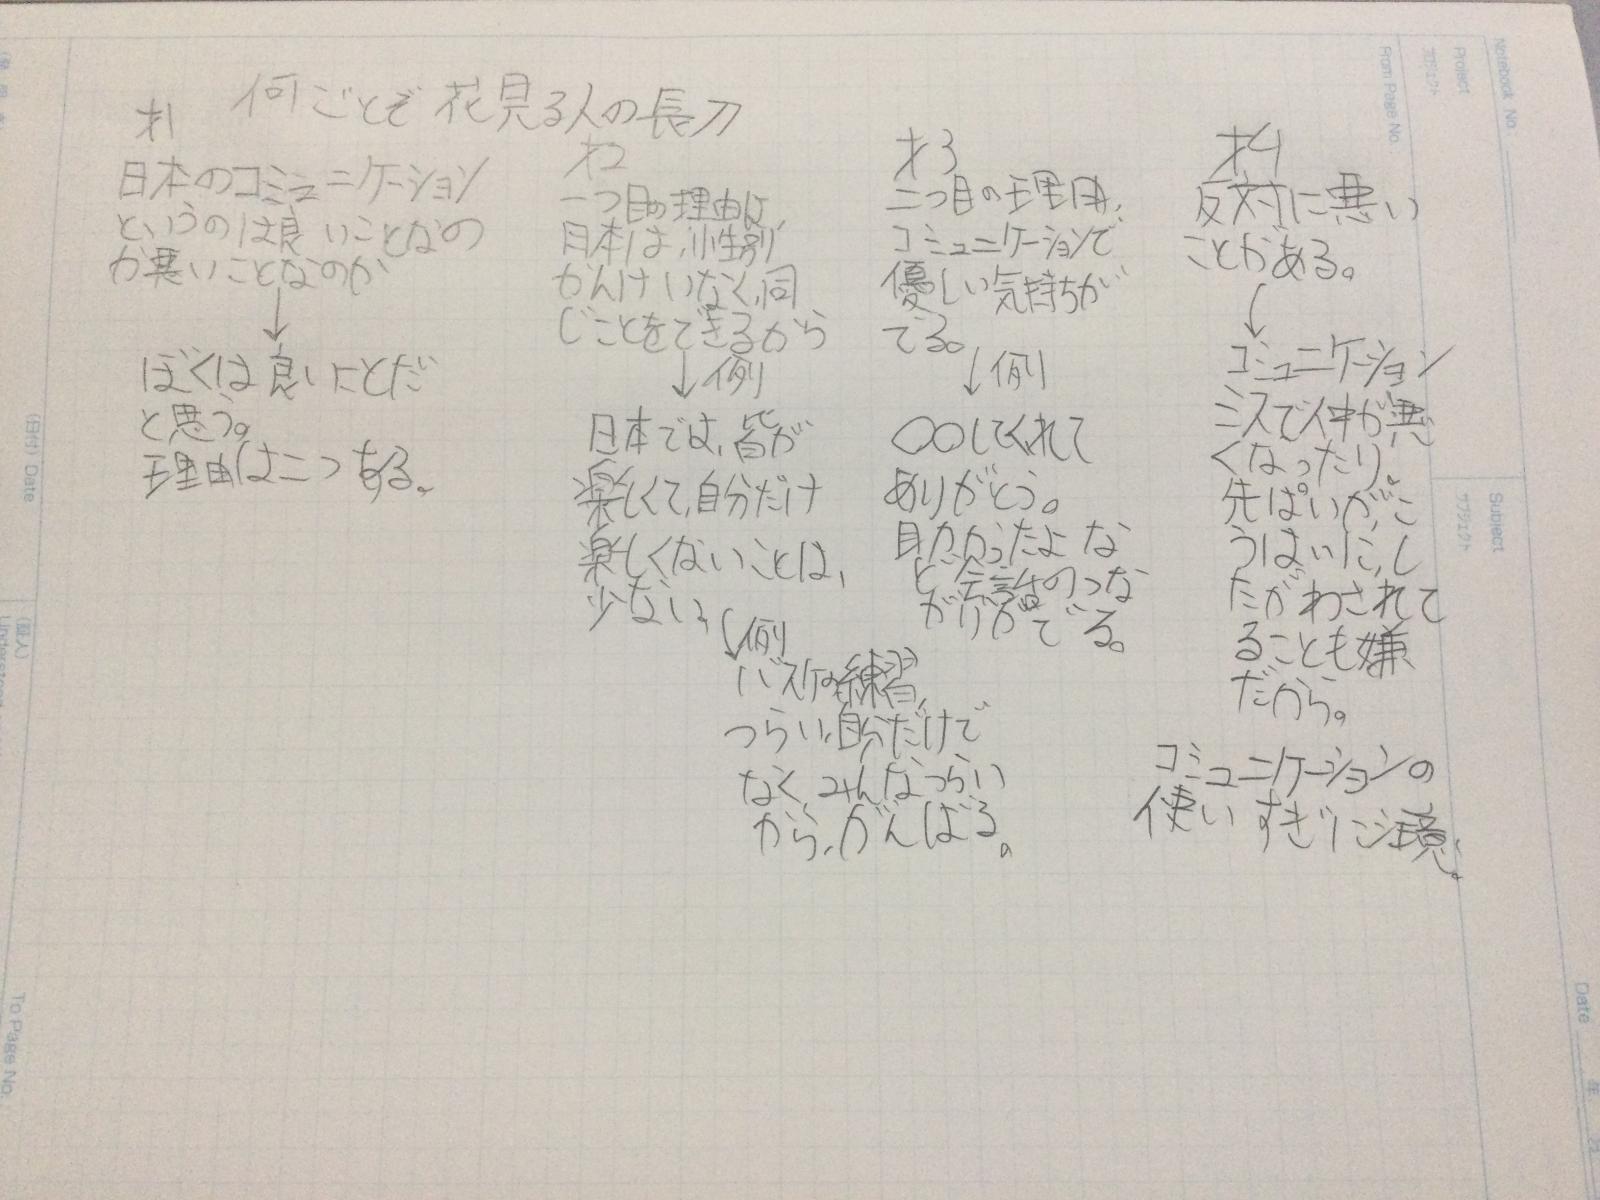 何ごとぞ花見る人の長刀
才1
日本のコミュニケーション
というのは良いことなの
か悪いことなのか
↓
ぼくは良いことだ
と思う。
理由は二つある。
才2
一つ目の理由は、
日本は、小性別
かんけいなく、同
じことをできるから
↓例
日本では、皆が
楽しくて、自分だけ
楽しくないことは、
少ない。
↓例
バスケの練習、
つらい、自分だけで
なく、みんなつらい
から、がんばる。
才3
二つ目の理由、
コミュニケーションで
優しい気持ちが
でる。
↓例
〇〇してくれて
ありがとう。
助かったよ な
ど会話のつな
がりがでる。
才4
反対に悪い
ことがある。
↓
コミュニケーション
ミスで仲が悪
くなったり。
先ぱいが、こ
うはいに、し
たがわされて
ることも嫌
だから。
コミュニケーションの
使いすぎに注意。
Notebook No.
Project
プロジェクト
From Page No.
Subject
サブジェクト
Date
年
(日付) Date
To Page No.